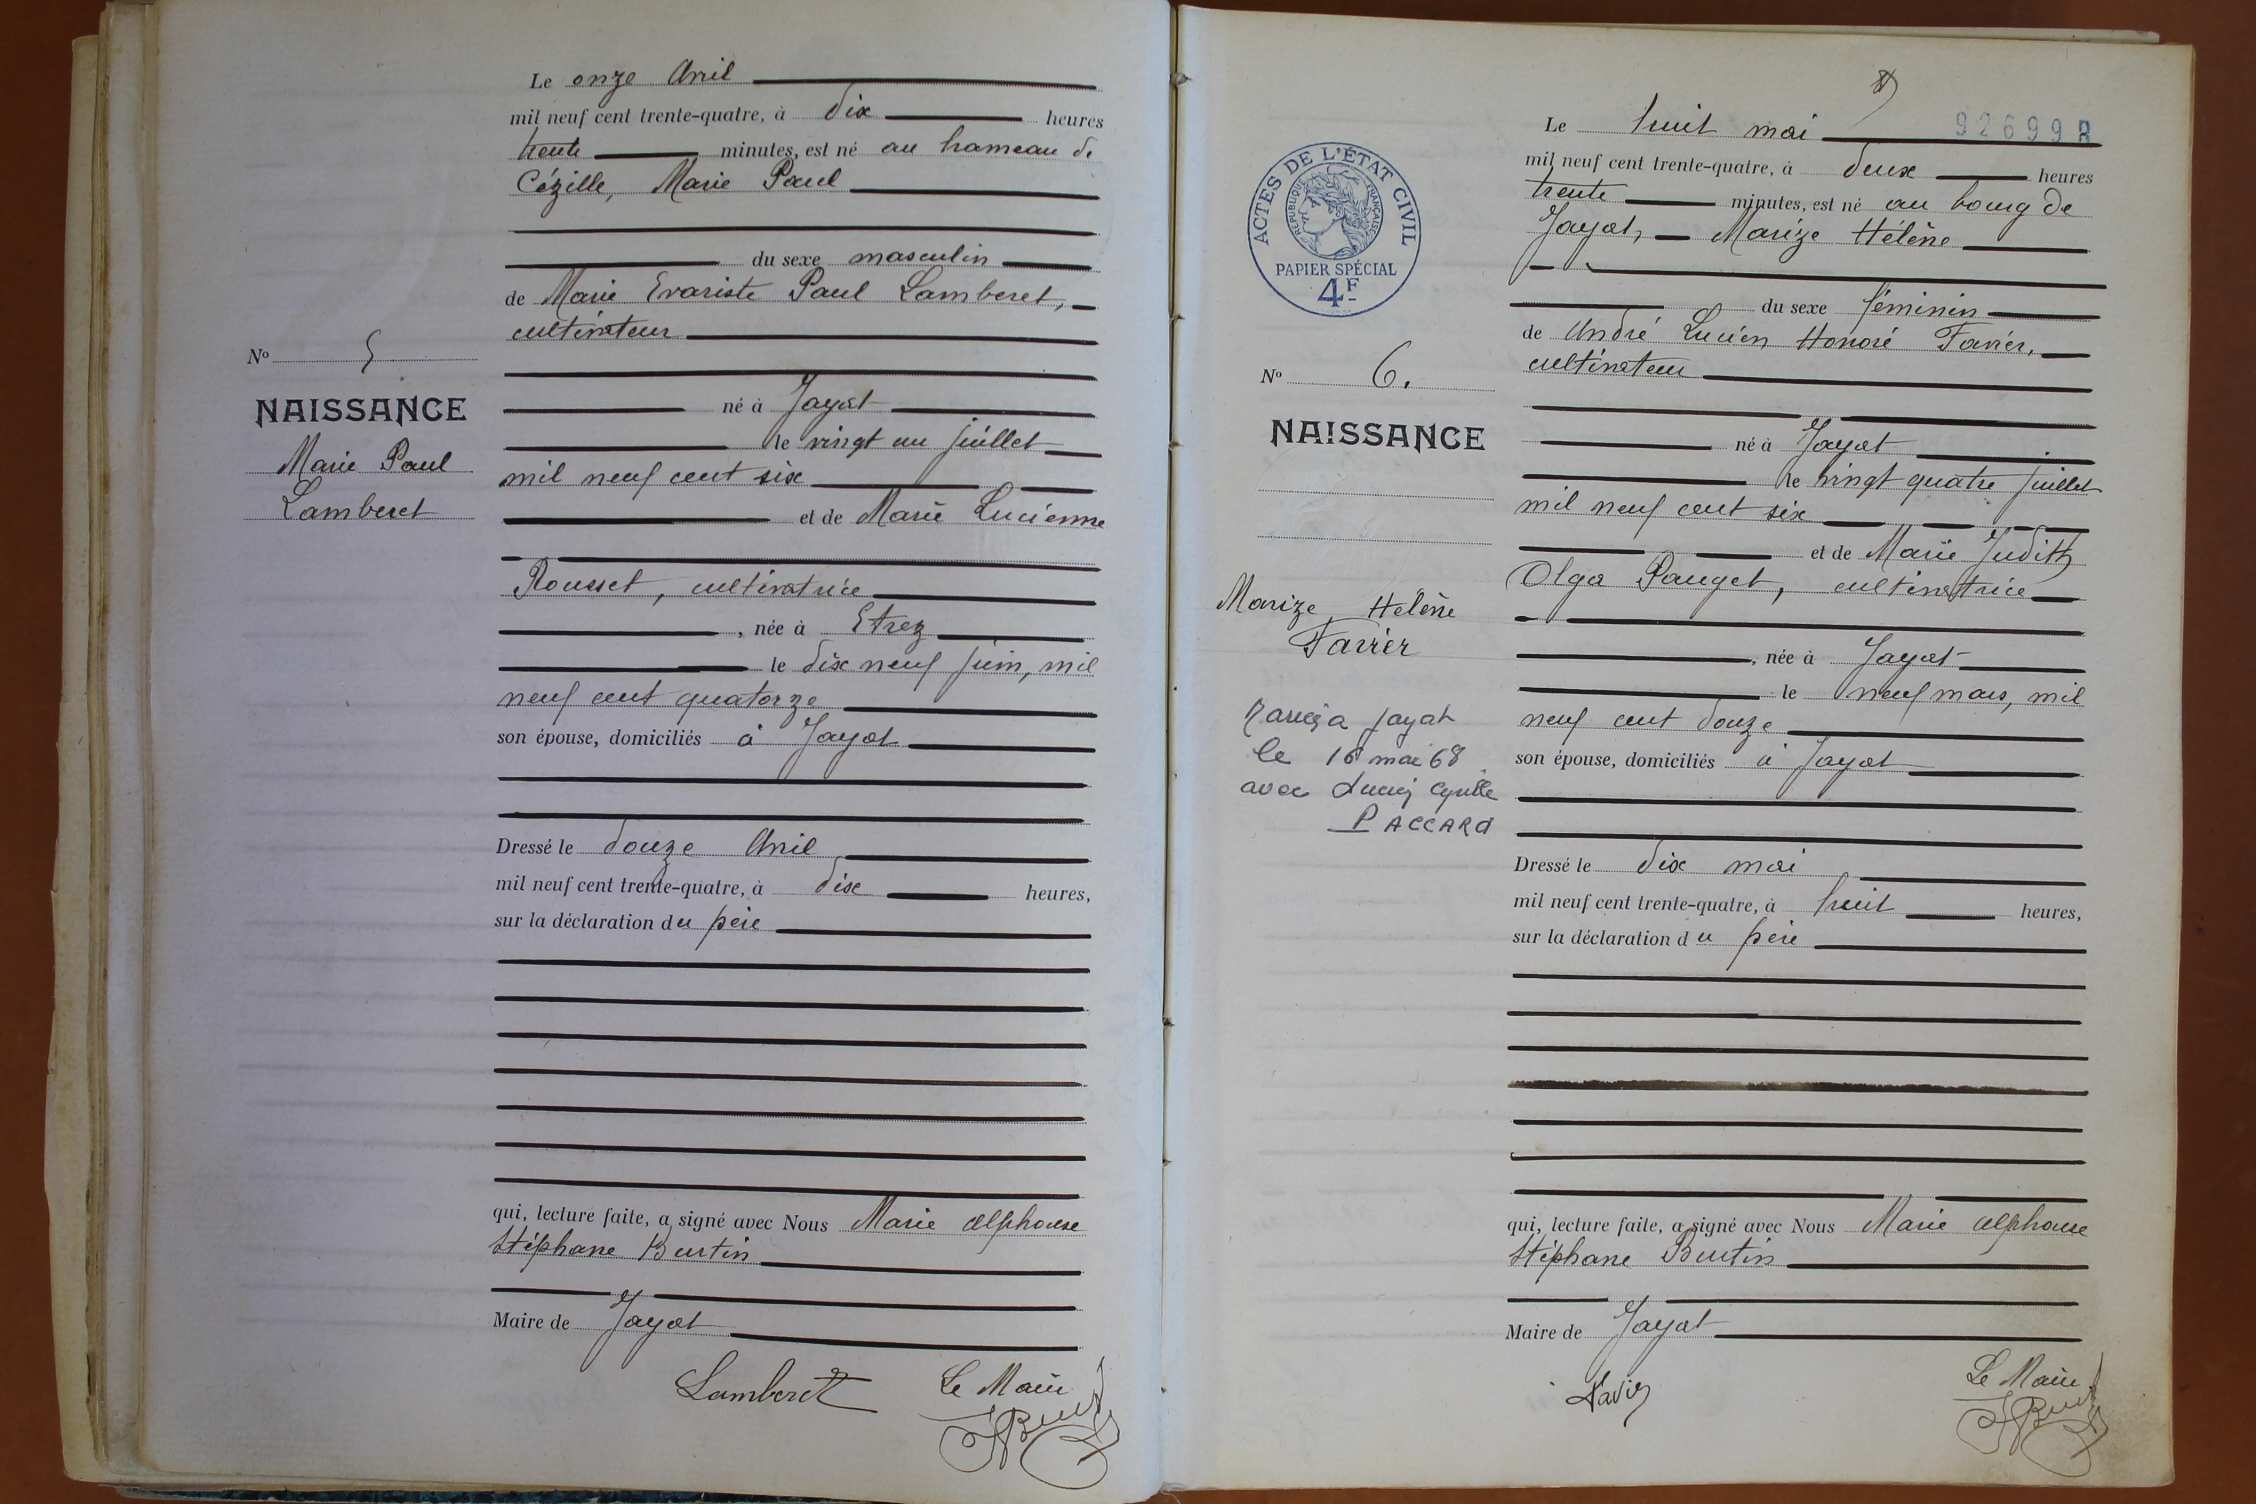 Le onze Avril
mil neuf cent trente-quatre, à dix heures
trente minutes, est né au hameau de
Cézille, Marie Paul
du sexe masculin
de Marie Evariste Paul Lamberet,
cultivateur
né à Jayat
le vingt un juillet
mil neuf cent six
et de Marie Lucienne
Rousset, cultivatrice
, née à Etrez
le dix neuf juin, mil
neuf cent quatorze
son épouse, domiciliés à Jayat
Dressé le douze Avril
mil neuf cent trente-quatre, à dix heures,
sur la déclaration du père
qui, lecture faite, a signé avec Nous Marie Alphonse
Stéphane Burtin
Maire de Jayat
Lamberet Le Maire
Nº 5
NAISSANCE
Marie Paul
Lamberet
926992
Le huit mai
mil neuf cent trente-quatre, à deux heures
trente minutes, est né au bourg de
Jayat, Marize Hélène
du sexe féminin
de André Lucien Honoré Favier,
cultivateur
né à Jayat
le vingt quatre juillet
mil neuf cent six
et de Marie Judith
Olga Pauget, cultivatrice
, née à Jayat
le neuf mars, mil
neuf cent douze
son épouse, domiciliés à Jayat
Dressé le dix mai
mil neuf cent trente-quatre, à huit heures,
sur la déclaration du père
qui, lecture faite, a signé avec Nous Marie Alphonse
Stéphane Burtin
Maire de Jayat
Favier Le Maire
ACTES DE L'ÉTAT CIVIL
RÉPUBLIQUE FRANÇAISE
PAPIER SPÉCIAL
4F
Nº 6.
NAISSANCE
Marize Hélène
Favier
Mariée à Jayat
le 16 mai 68
avec Lucien Cyrille
PACCARD